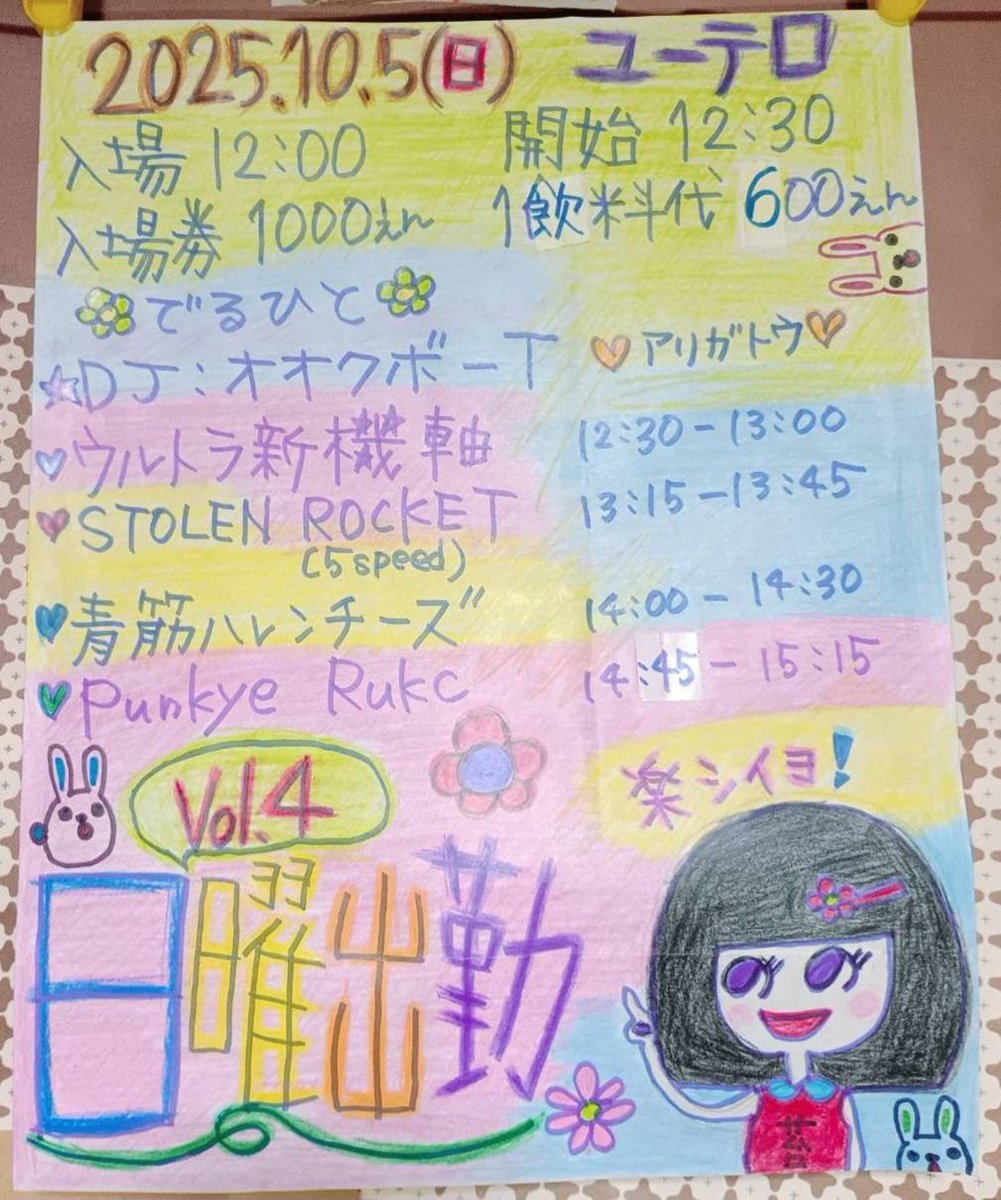 2025.10.5(日) ユーテロ
入場 12:00 開始 12:30
入場券 1000えん 1飲料代 600えん
でるひと
DJ:オオクボーT アリガトウ
ウルトラ新機軸 12:30-13:00
STOLEN ROCKET 13:15-13:45
(5speed)
青筋ハレンチーズ 14:00-14:30
Punkye Rukc 14:45-15:15
Vol.4
楽シイヨ!
日曜出勤
苔